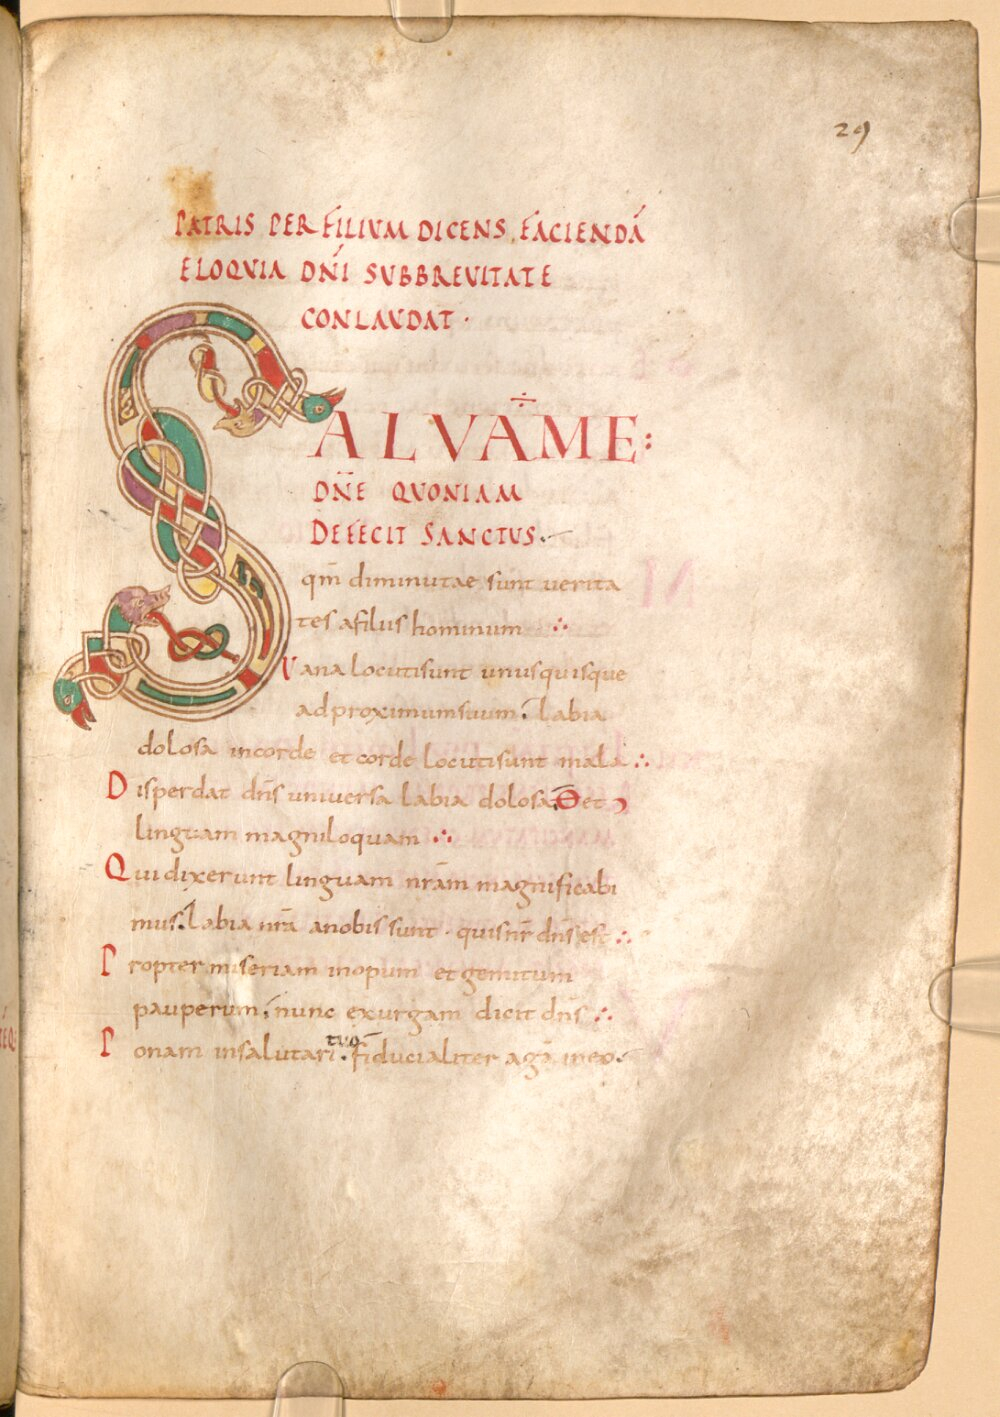 29
PATRIS PER FILIUM DICENS FACIENDĀ
ELOQUIA DN̄I SUBBREVITATE
CONLAUDAT ·
SALVVĀME:
DN̄E QUONIAM
DEFECIT SANCTUS.
qm̄ diminutae sunt verita
tes afiliis hominum ∴
Vana locutisunt unusquisque
adproximumsuum. labia
dolosa incorde et corde locutisunt mala ∴
Disperdat dn̄s universa labia dolosa et
linguam magniloquam ∴
Qui dixerunt linguam nr̄am magnificabi
mus. labia nr̄a anobis sunt · quisnr̄ dn̄s est ∴
Propter miseriam inopum et gemitum
pauperum, nunc exurgam dicit dn̄s ∴
tuo
Ponam insalutari. fiducialiter agā ineo.